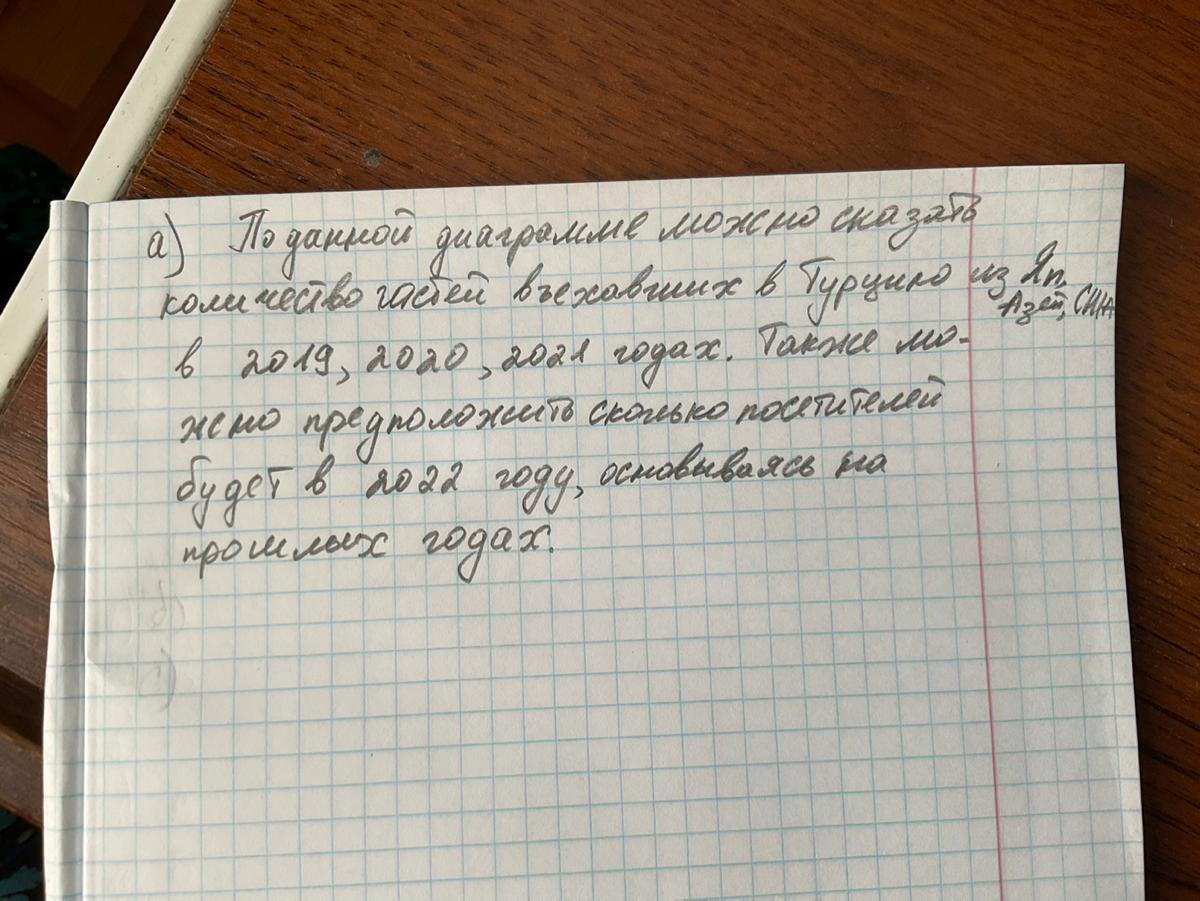 а) По данной диаграмме можно сказать
количество гостей въехавших в Турцию из Яп,
Азей, США
в 2019, 2020, 2021 годах. Также мо-
жно предположить сколько посетителей
будет в 2022 году, основываясь на
прошлых годах.
б)
с)